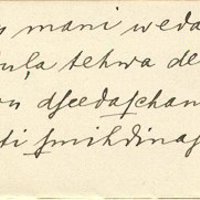 mani weda
tehwa de
dſeedaſchan
ti ſmihdinaj